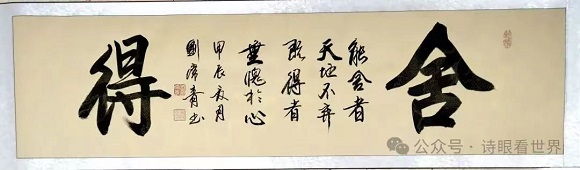 舍
能舍者
天地不弃
既得者
无愧于心
甲辰夏月
刘
书
得
公众号·诗眼看世界